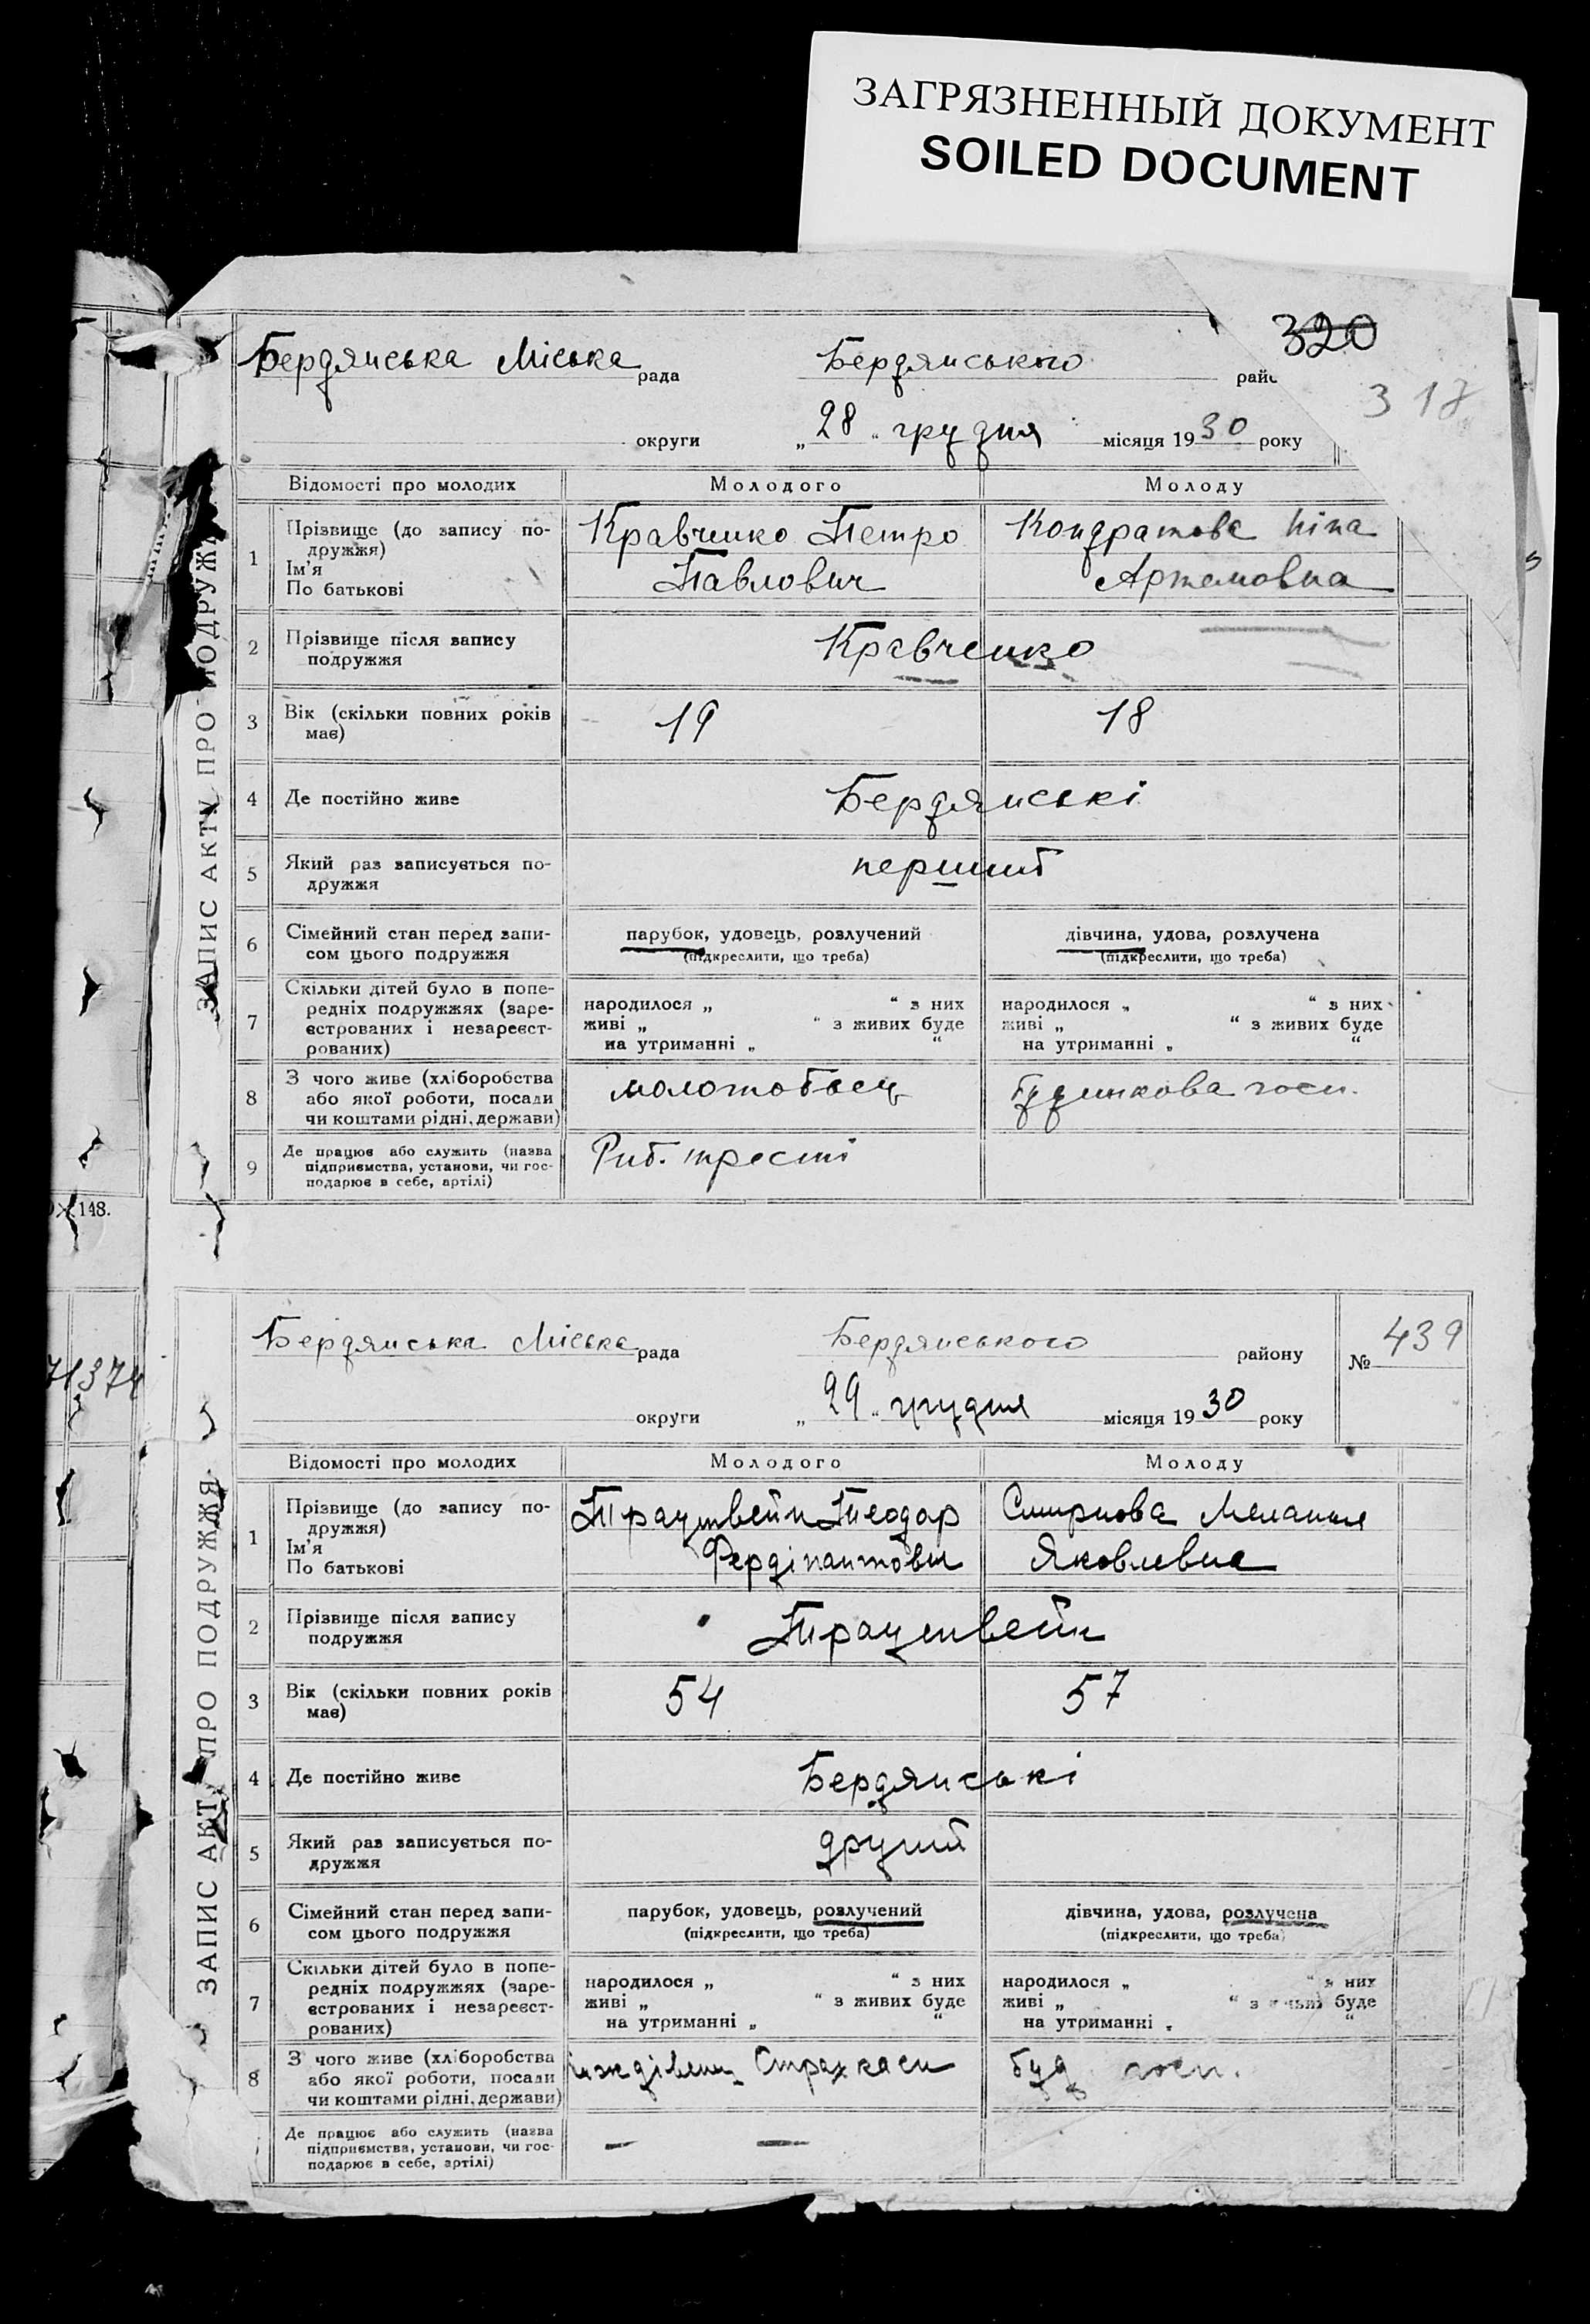 ЗАГРЯЗНЕННЫЙ ДОКУМЕНТ
SOILED DOCUMENT
320
317
Бердянська Міська рада Бердянського райо
округи „28“ грудня місяця 1930 року
ЗАПИС АКТУ ПРО ПОДРУЖ
Відомості про молодих Молодого Молоду
1 Прізвище (до запису по-
дружжя)
Ім'я
По батькові
Кравченко Петро
Павлович
Кондратова Ніна
Артемовна
2 Прізвище після запису
подружжя
Кравченко
3 Вік (скільки повних років
має)
19 18
4 Де постійно живе Бердянські
5 Який раз записується по-
дружжя
перший
6 Сімейний стан перед запи-
сом цього подружжя
парубок, удовець, розлучений
(підкреслити, що треба)
дівчина, удова, розлучена
(підкреслити, що треба)
7 Скільки дітей було в попе-
редніх подружжях (заре-
єстрованих і незареєст-
рованих)
народилося „ “ з них
живі „ “ з живих буде
на утриманні „ “
народилося „ “ з них
живі „ “ з живих буде
на утриманні „ “
8 З чого живе (хліборобства
або якої роботи, посади
чи коштами рідні, держави)
молотобоєц
будинкова госп.
9 Де працює або служить (назва
підприємства, установи, чи гос-
подарює в себе, артілі)
Риб. тресті
148.
71374
Бердянська Міська рада Бердянського району № 439
округи „29“ грудня місяця 1930 року
ЗАПИС АКТ ПРО ПОДРУЖЖЯ
Відомості про молодих Молодого Молоду
1 Прізвище (до запису по-
дружжя)
Ім'я
По батькові
Траутвейн Теодор
Фердінантови
Смирнова Меланія
Яковлевна
2 Прізвище після запису
подружжя
Траутвейн
3 Вік (скільки повних років
має)
54 57
4 Де постійно живе Бердянські
5 Який раз записується по-
дружжя
другий
6 Сімейний стан перед запи-
сом цього подружжя
парубок, удовець, розлучений
(підкреслити, що треба)
дівчина, удова, розлучена
(підкреслити, що треба)
7 Скільки дітей було в попе-
редніх подружжях (заре-
єстрованих і незареєст-
рованих)
народилося „ “ з них
живі „ “ з живих буде
на утриманні „ “
народилося „ “ з них
живі „ “ з живих буде
на утриманні „ “
8 З чого живе (хліборобства
або якої роботи, посади
чи коштами рідні, держави)
іждівен. Страхкаси
буд госп.
Де працює або служить (назва
підприємства, установи, чи гос-
подарює в себе, артілі)
— —